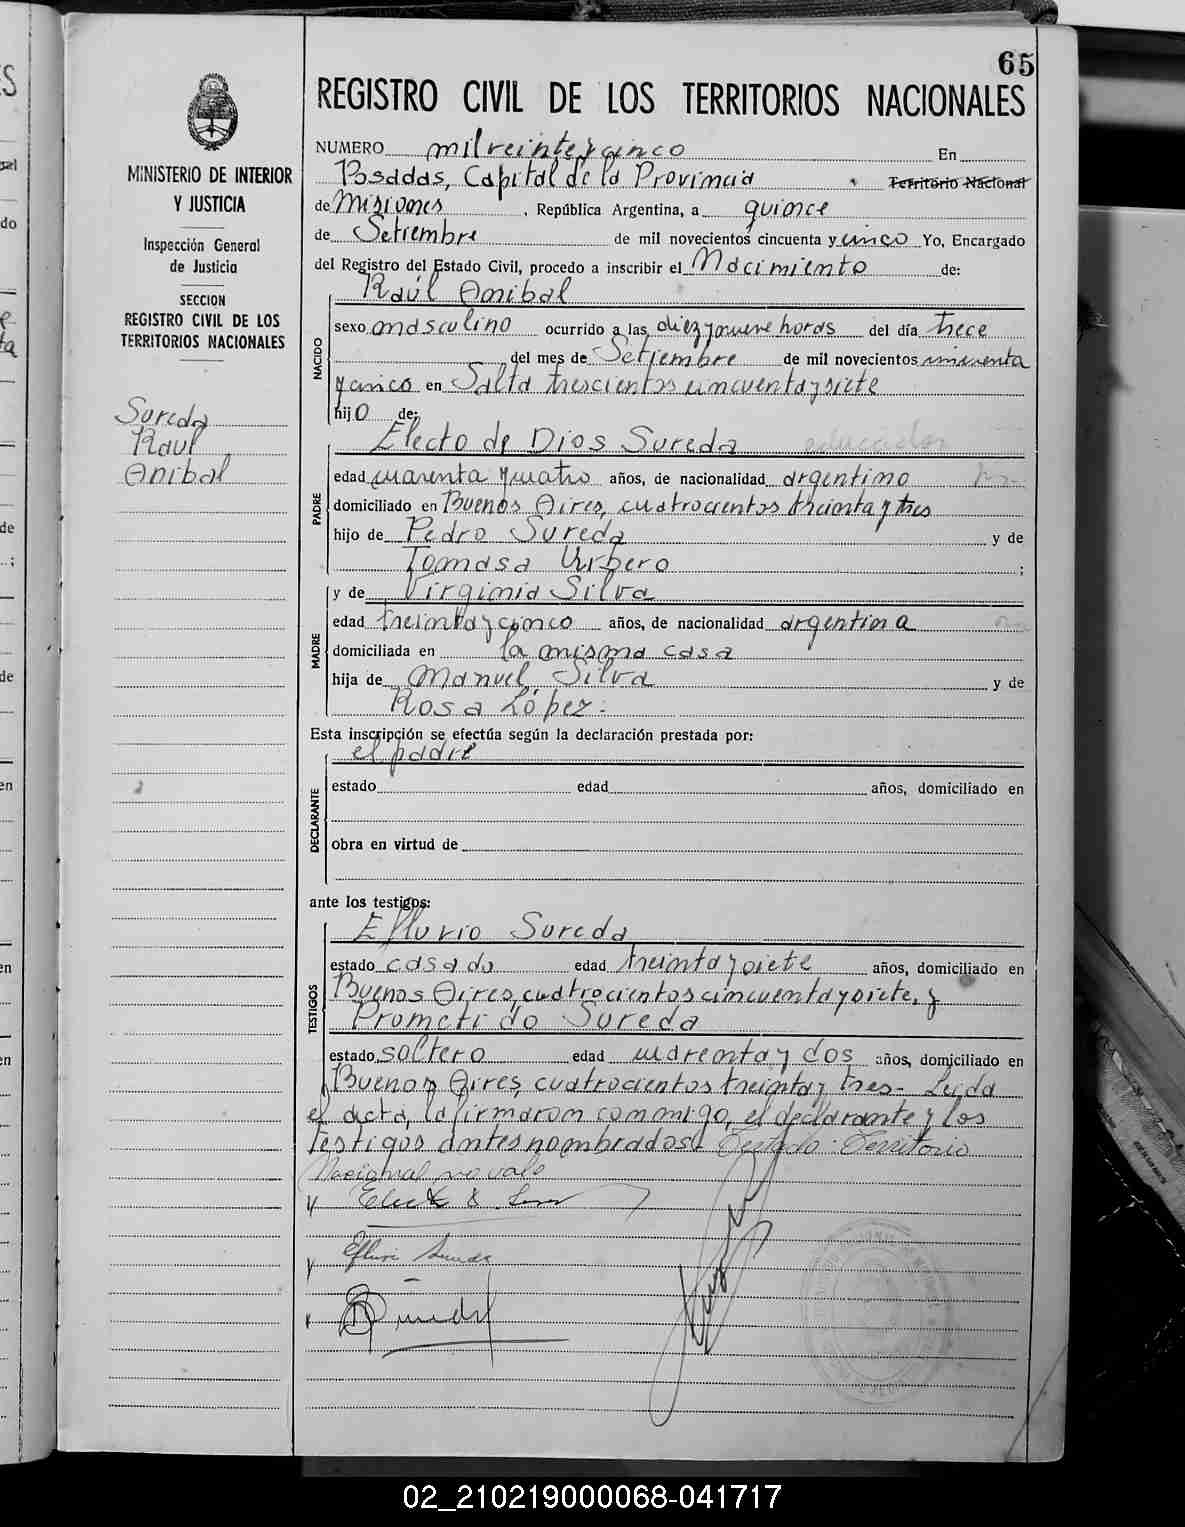 65
REGISTRO CIVIL DE LOS TERRITORIOS NACIONALES
MINISTERIO DE INTERIOR
Y JUSTICIA
Inspección General
de Justicia
SECCION
REGISTRO CIVIL DE LOS
TERRITORIOS NACIONALES
Sureda
Raul
Anibal
NUMERO mil veinte y cinco En
Posadas, Capital de la Provincia Territorio Nacional
de Misiones, República Argentina, a quince
de Setiembre de mil novecientos cincuenta y cinco Yo, Encargado
del Registro del Estado Civil, procedo a inscribir el Nacimiento de:
Raúl Anibal
NACIDO
sexo masculino ocurrido a las diez y nueve horas del día trece
del mes de Setiembre de mil novecientos cincuenta
y cinco en Salta trescientos cincuenta y siete
hijo de:
Electo de Dios Sureda
PADRE
edad cuarenta y cuatro años, de nacionalidad argentino
domiciliado en Buenos Aires, cuatrocientos treinta y tres
hijo de Pedro Sureda y de
Tomasa Urbero ;
y de Virginia Silva
MADRE
edad treinta y cinco años, de nacionalidad argentina
domiciliada en la misma casa
hija de Manuel Silva y de
Rosa López.
Esta inscripción se efectúa según la declaración prestada por:
el padre
DECLARANTE
estado edad años, domiciliado en
obra en virtud de
ante los testigos:
Efluvio Sureda
TESTIGOS
estado casado edad treinta y siete años, domiciliado en
Buenos Aires, cuatrocientos cincuenta y siete, y
Prometido Sureda
estado soltero edad cuarenta y dos años, domiciliado en
Buenos Aires, cuatrocientos treinta y tres- Leida
el acta, la firmaron conmigo, el declarante y los
testigos antes nombrados. Testado: Territorio
Nacional no vale
02_210219000068-041717